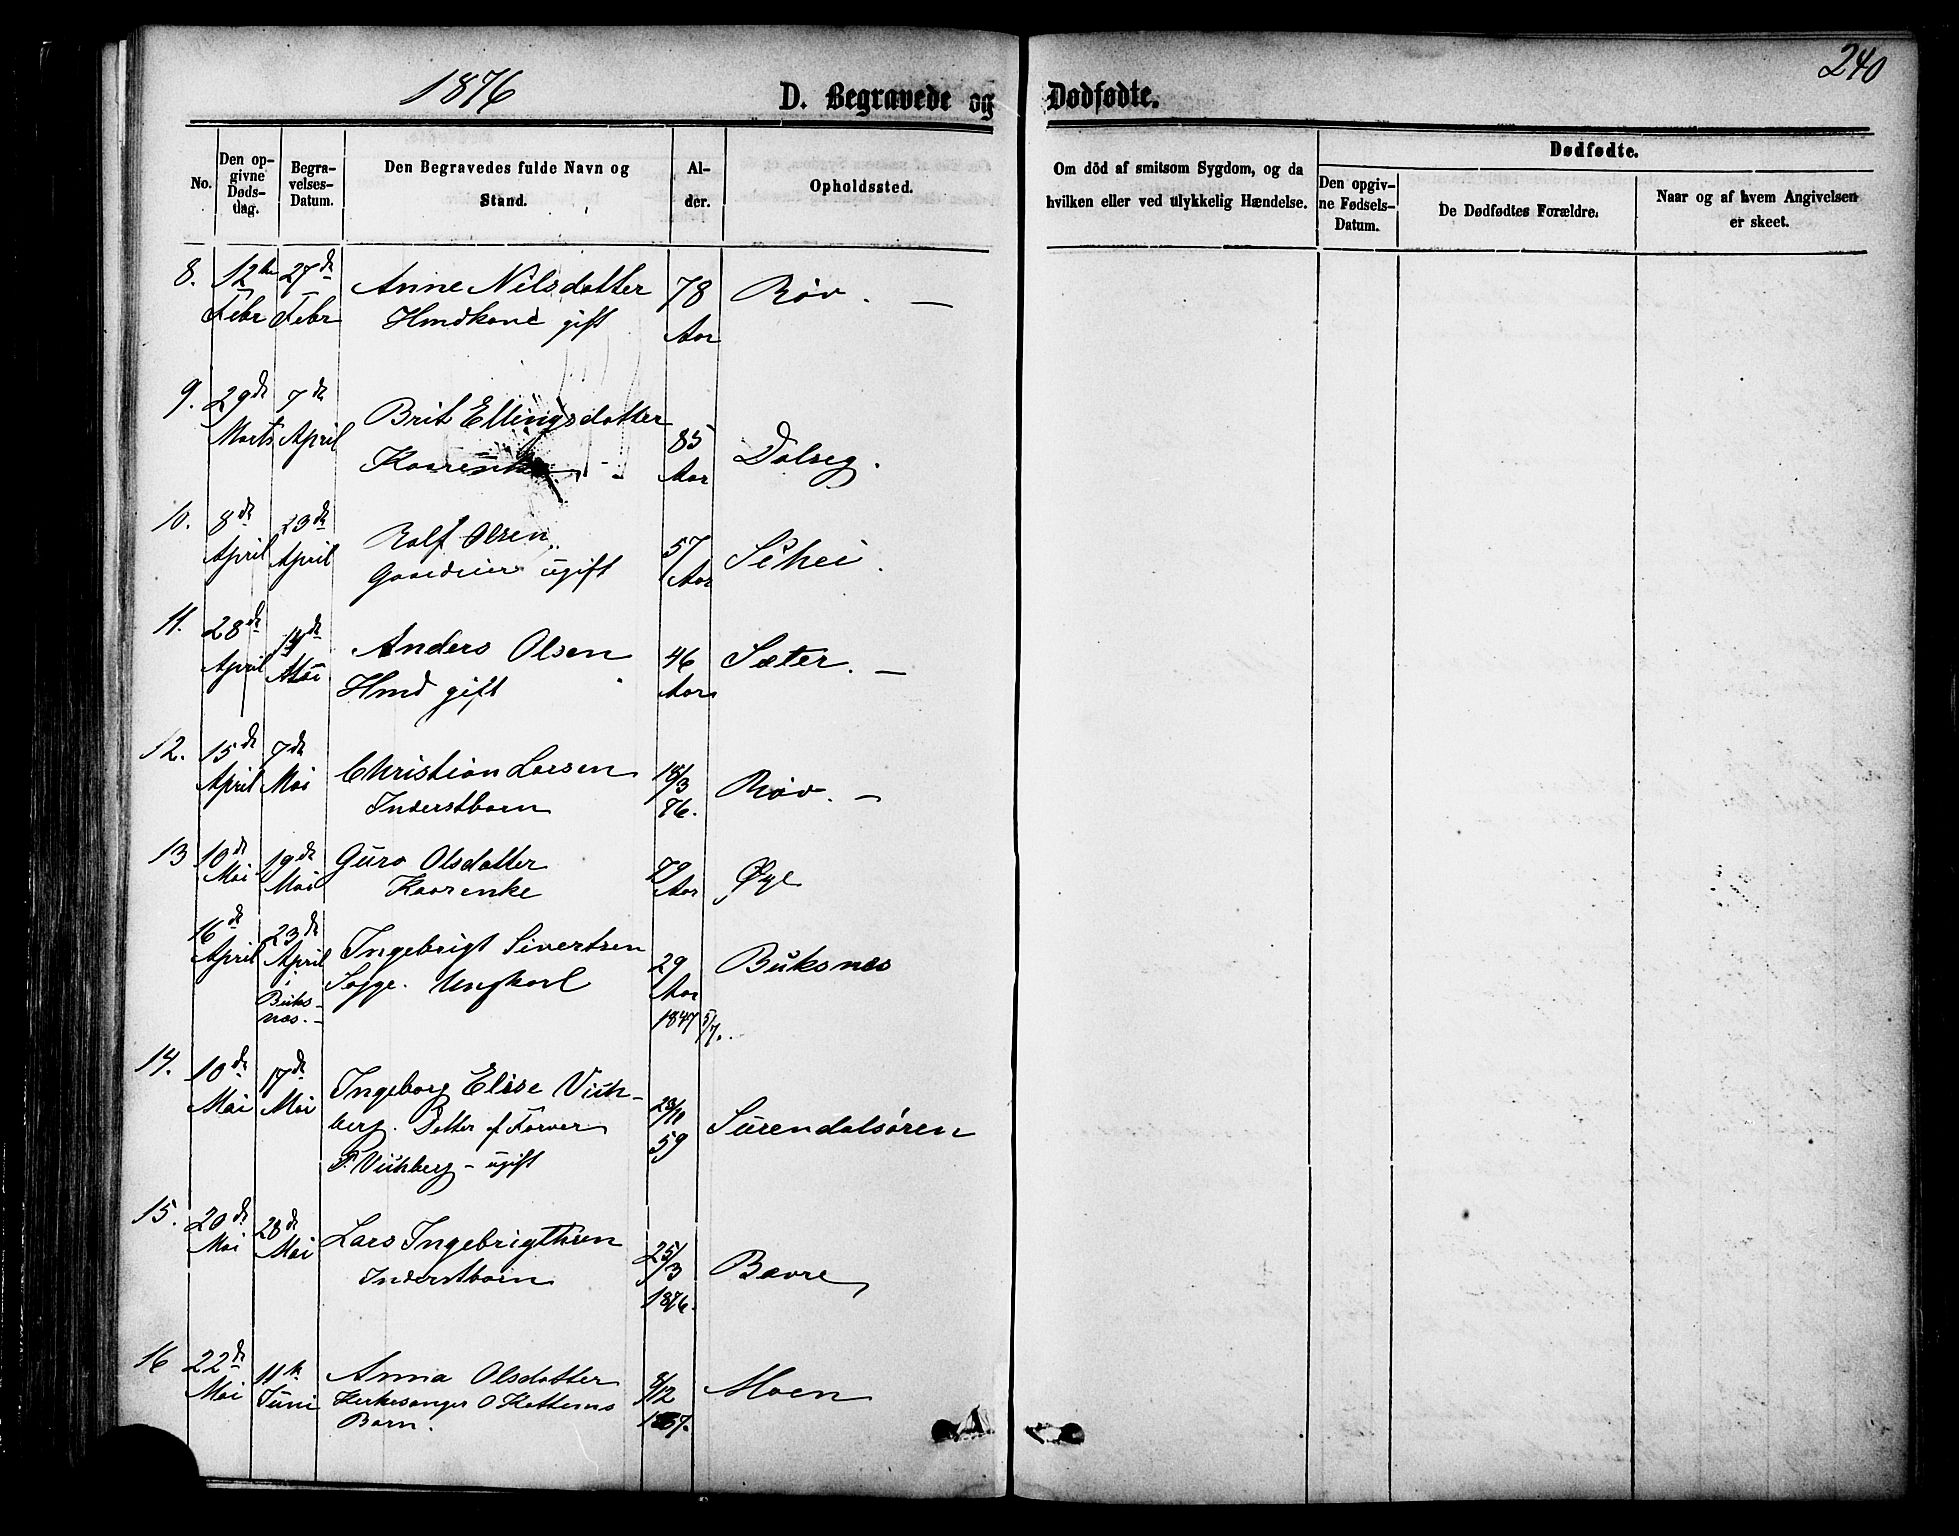 1876
240
D. Begravede og Dødfødte.
No.
Den op-
givne
Døds-
dag.
Begra-
velses-
Datum.
Den Begravedes fulde Navn og
Stand.
Al-
der.
Opholdssted.
Om död af smitsom Sygdom, og da
hvilken eller ved ulykkelig Hændelse.
Dødfødte.
Den opgiv-
ne Fødsels-
Datum.
De Dødfødtes Forældre.
Naar og af hvem Angivelsen
er skeet.
8. 12te 27de Anne Nilsdatter 78 Røv. —
Febr Febr Hmdkone gift Aar
9. 29de 7de Brit Ellingsdatter 85 Dalseg.
Marts April Kaarenke Aar
10. 8de 23de Rolf Olsen 57 Sihei.
April April Gaardeier ugift Aar
11. 28de 14de Anders Olsen 46 Sæter. —
April Mai Hmd gift Aar
12. 15de 7de Christian Larsen 18/3 Røv. —
April Mai Inderstbarn 76.
13 10de 19de Guro Olsdatter 79 Øye
Mai Mai Kaarenke Aar
16de 23de Ingebrigt Sivertsen 29 Buksnes
April April Sogge. Ungkarl Aar
i Buks-
nes. — 1847 5/7.
14. 10de 17de Ingeborg Elise Viih- 28/10 Surendalsøren
Mai Mai berg. Datter af Farver 59
P. Viihberg – ugift
15. 20de 28de Lars Ingebrigtsen 25/3 Bævre
Mai Mai Inderstbarn 1876.
16 22de 11te Anna Olsdatter 8/12 Moen
Mai Juni Kirkesanger O Kattems 1867.
Barn.